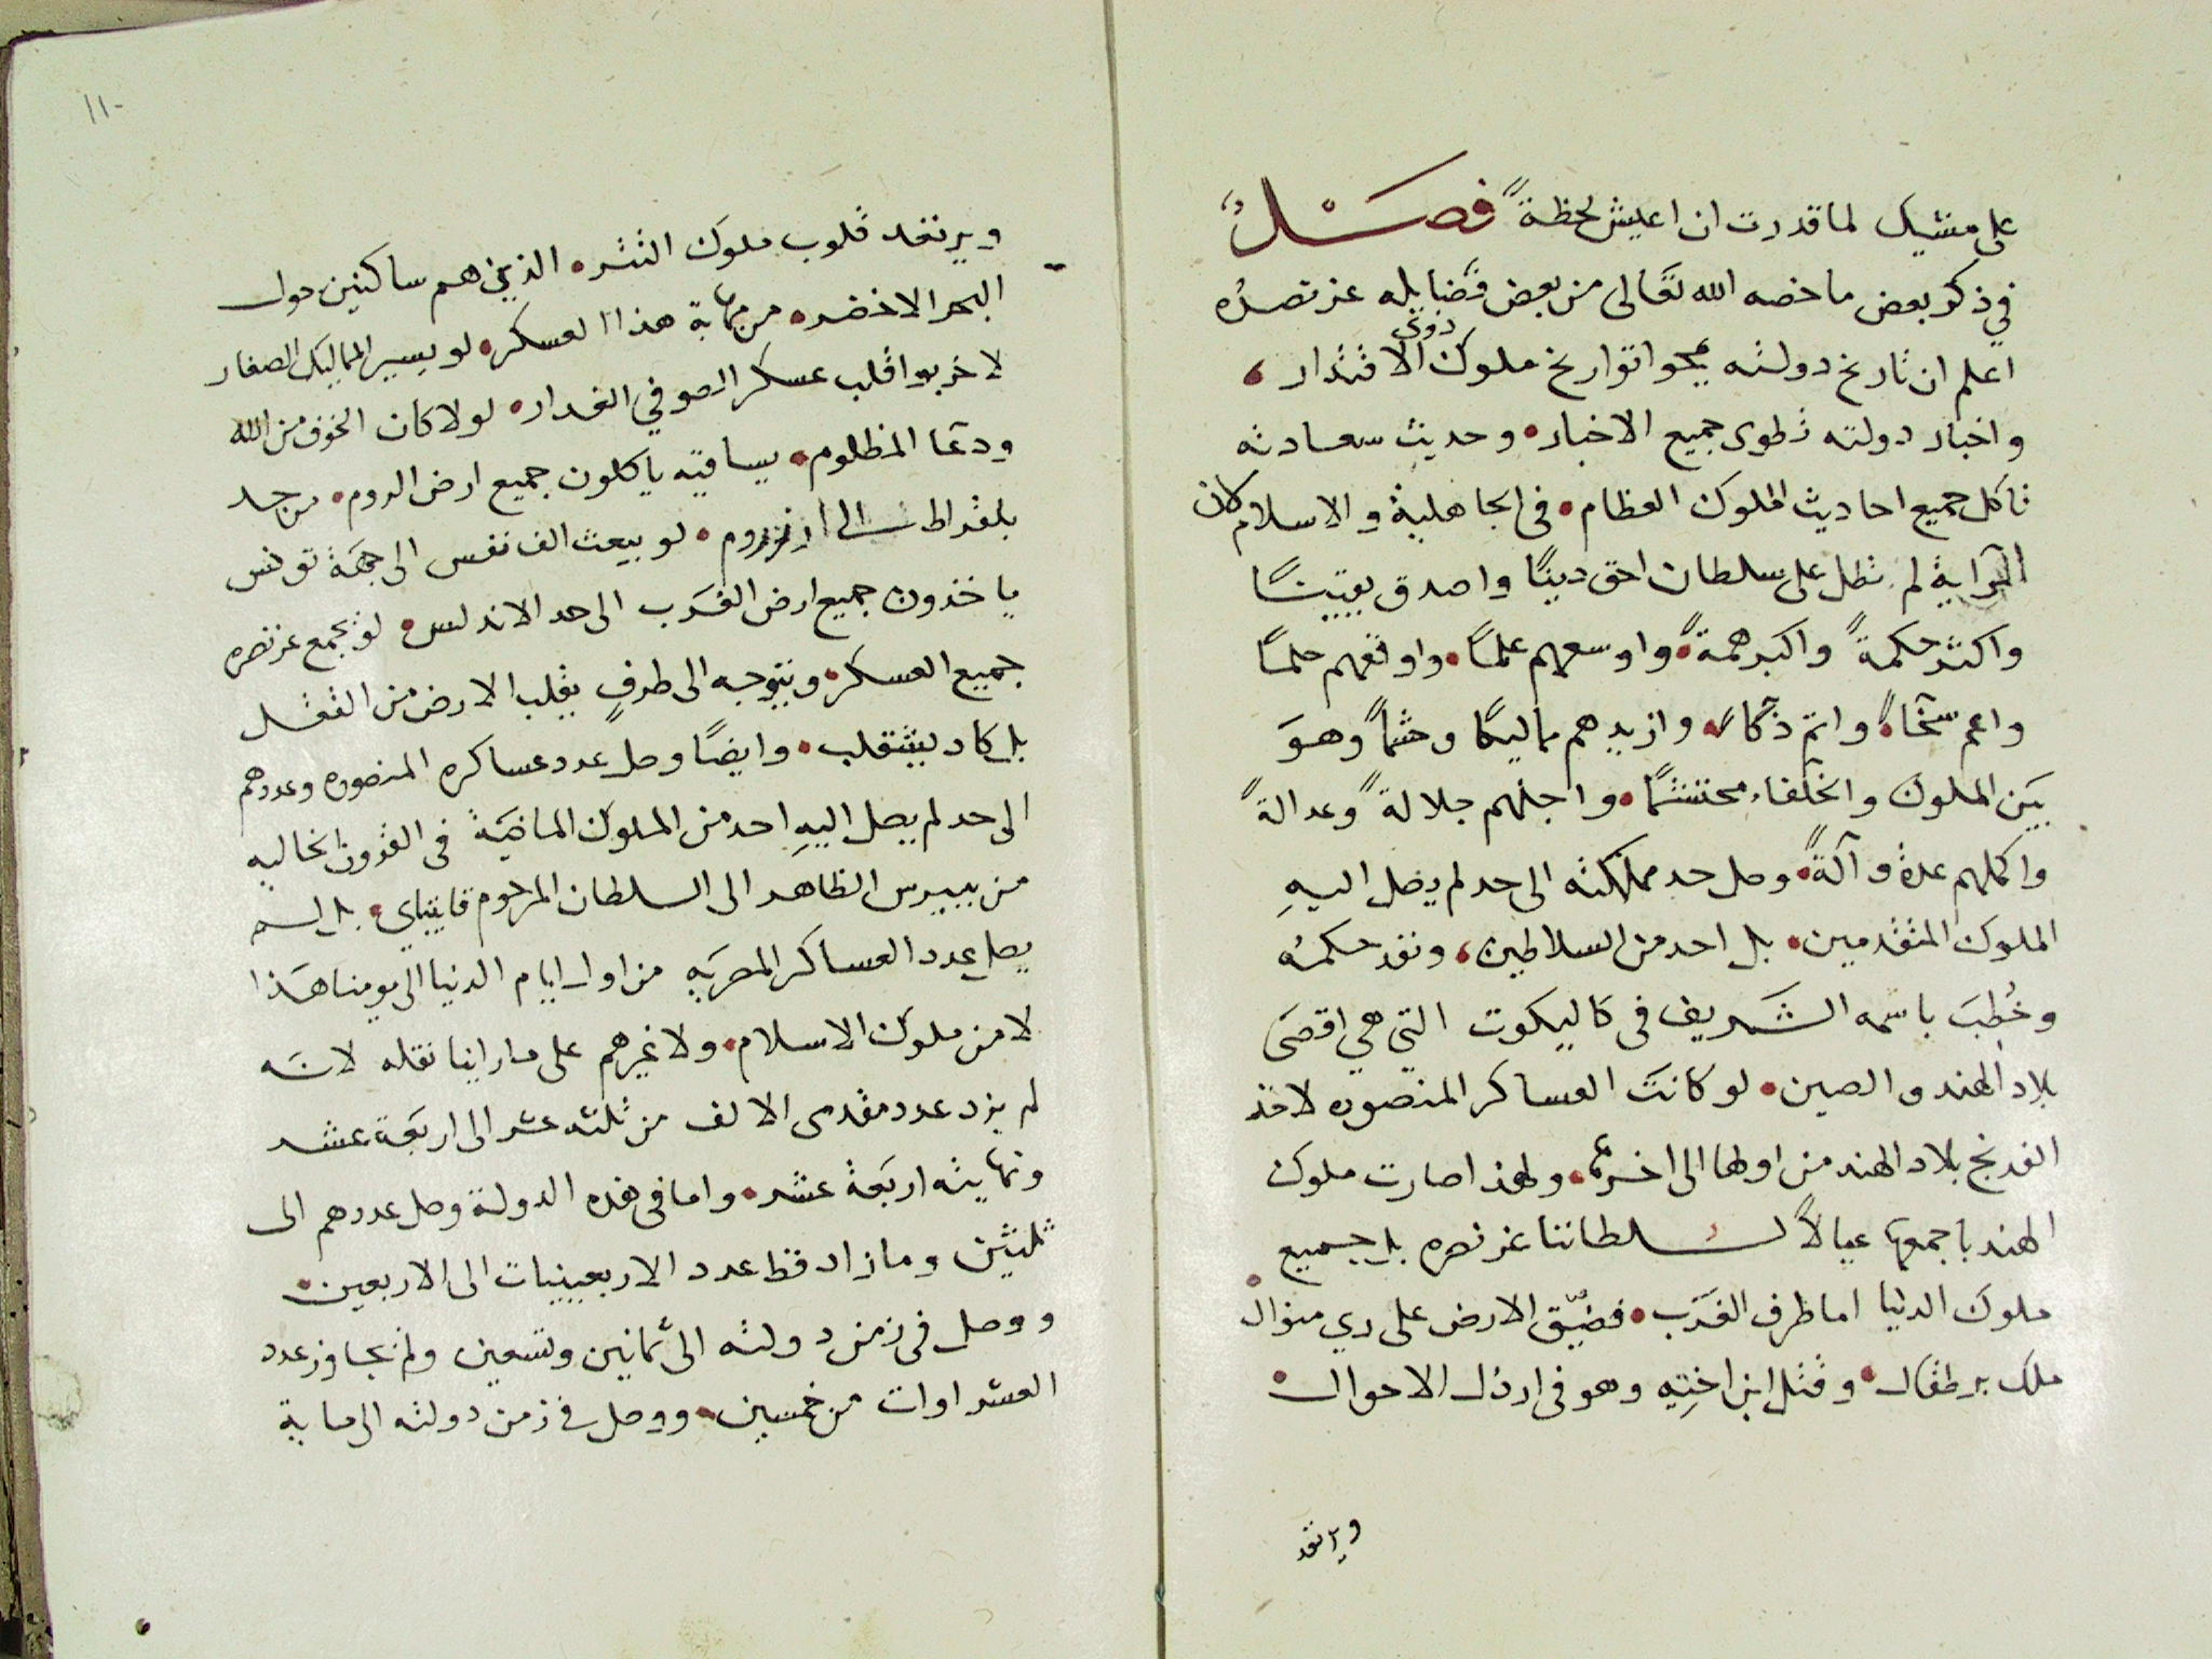 على مشيك لما قدرت ان اعيش لحظةً فصل
في ذكر بعض ما خصه الله تعالى من بعض فضايله عز نصره
اعلم ان تاريخ دولته يمحوا تواريخ ملوك ذوى الاقتدار
واخبار دولته تطوى جميع الاخبار وحديث سعادته
تاكل جميع احاديث الملوك العظام في الجاهلية والاسلام كان
الراية لم تظل على سلطان احق دينًا واصدق يقينًا
واكثر حكمةً واكبر همةً واوسعهم علمًا واوقعهم حلمًا
واعم سخآءً واتم ذكآءً وازيدهم مماليكًا وحشمًا وهو
بين الملوك والخلفاء محتشمًا واجلهم جلالةً وعدالةً
واكملهم عدة وآلةً وصل حد مملكته الى حد لم يصل اليهِ
الملوك المتقدمين بل احد من السلاطين ونفد حكمه
وخُطِبَ باسمه الشريف في كاليكوت التي هي اقصى
بلاد الهند والصين لو كانت العساكر المنصوره لاخذ
الفرنج بلاد الهند من اولها الى اخرها ولهذا صارت ملوك
الهند باجمعها عيالاً لسلطاننا عز نصره بل جميع
ملوك الدنيا اما طرف الغرب فضيّق الارض على ري منوال
ملك برطقال وقتل ابن اختِه وهو في ارذل الاحوال
ويرتعد
١١٠
ويرتعد قلوب ملوك التتر الذين هم ساكنين حول
البحر الاخضر من مهابة هذا العسكر لو يسير المماليك الصغار
لاخربوا قلب عسكر الصوفي الغدار لولا كان الخوف من الله
ودعا المظلوم بساقيه ياكلون جميع ارض الروم من حد
بلقراط الى ارزروم لو يبعث الف نفس الى جهة تونس
ياخذون جميع ارض الغرب الى حد الاندلس لو يجمع عز نصره
جميع العسكر ويتوجه الى طرفٍ يقلب الارض من الثقل
بل كاد ينقلب وايضًا وصل عدد عساكره المنصوره وعددهم
الى حد لم يصل اليهِ احد من الملوك الماضية في القرون الخاليه
من بيبرس الظاهر الى السلطان المرحوم قايتباي بل لم
يصل عدد العساكر المصريه من اول ايام الدنيا الى يومنا هذا
لا من ملوك الاسلام ولا غيرهم على ما راينا نقله لانه
لم يزد عدد مقدمى الالف من ثلثه عشر الى اربعة عشر
ونهايته اربعة عشر واما في هذه الدولة وصل عددهم الى
ثلثين وما زاد قط عدد الاربعينيات الى الاربعين
ووصل في زمن دولته الى ثمانين وتسعين ولم يجاوز عدد
العشراوات من خمسين ووصل في زمن دولته الى ماية